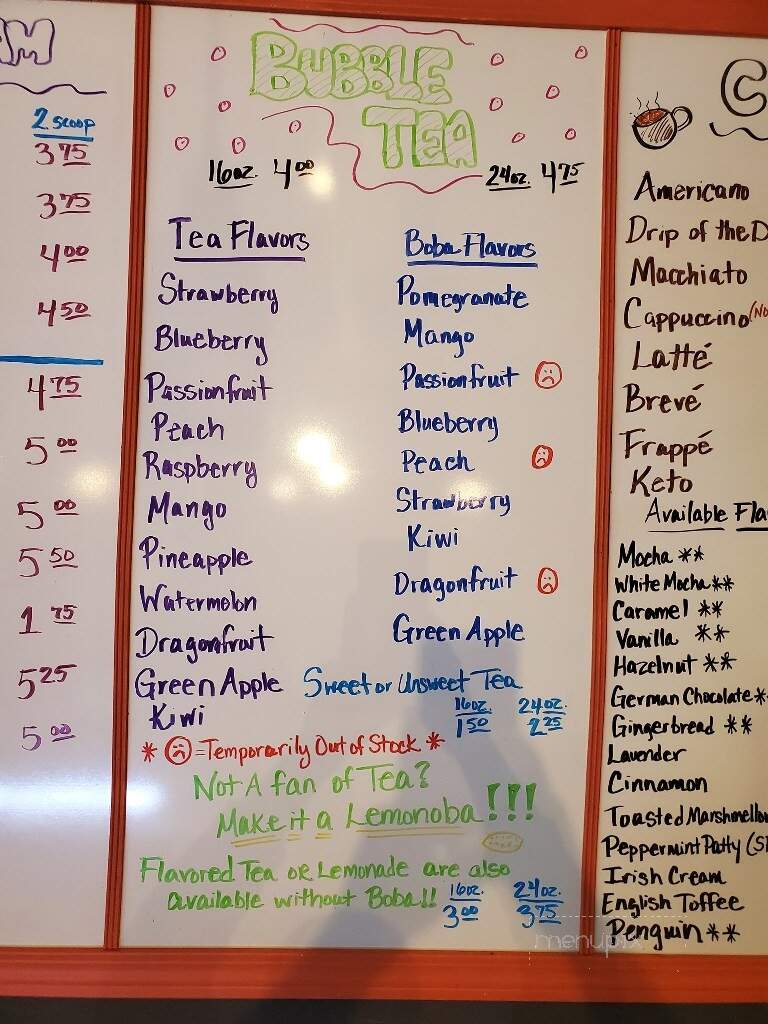 AM
2 scoop
3 75
3 75
4 00
4 50
4 75
5 00
5 00
5 50
1 75
5 25
5 00
BUBBLE
TEA
16oz. 4 00
24oz. 4 75
Tea Flavors
Strawberry
Blueberry
Passionfruit
Peach
Raspberry
Mango
Pineapple
Watermelon
Dragonfruit
Green Apple
Kiwi
Boba Flavors
Pomegranate
Mango
Passionfruit
Blueberry
Peach
Strawberry
Kiwi
Dragonfruit
Green Apple
Sweet or Unsweet Tea
16oz. 24oz.
1 50 2 25
* = Temporarily Out of Stock *
Not A fan of Tea?
Make it a Lemonoba!!!
Flavored Tea or Lemonade are also
available without Boba!!
16oz. 24oz.
3 00 3 75
C
Americano
Drip of the D
Macchiato
Cappuccino (No
Latté
Brevé
Frappé
Keto
Available Fla
Mocha **
White Mocha **
Caramel **
Vanilla **
Hazelnut **
German Chocolate *
Gingerbread **
Lavender
Cinnamon
Toasted Marshmellow
Peppermint Patty (S
Irish Cream
English Toffee
Penguin **
menupix